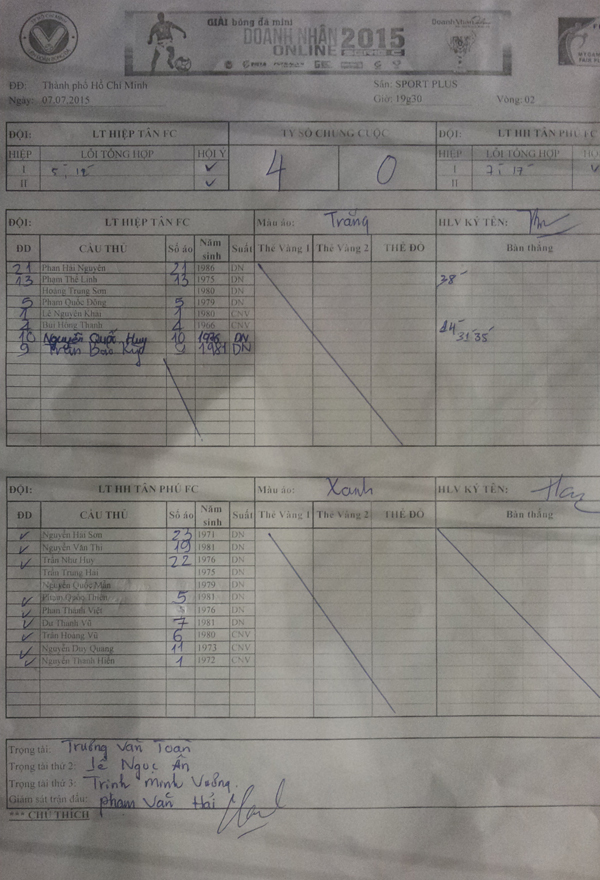 GIẢI bóng đá mini
DOANH NHÂN 2015
ONLINE
ĐĐ: Thành phố Hồ Chí Minh Sân: SPORT PLUS
Ngày: 07.07.2015 Giờ: 19g30 Vòng: 02
ĐỘI: LT HIỆP TÂN FC TỶ SỐ CHUNG CUỘC ĐỘI: LT HH TÂN PHÚ FC
HIỆP LỖI TỔNG HỢP HỘI Ý 4 0 HIỆP LỖI TỔNG HỢP
I 5', 12' ✓ I 7', 17' ✓
II ✓ II
ĐỘI: LT HIỆP TÂN FC Màu áo: Trắng HLV KÝ TÊN:
ĐD CẦU THỦ Số áo Năm sinh Suất Thẻ Vàng 1 Thẻ Vàng 2 THẺ ĐỎ Bàn thắng
21 Phan Hải Nguyên 21 1986 DN
13 Phạm Thế Linh 13 1975 DN 38'
Hoàng Trung Sơn 1980 DN
5 Phạm Quốc Dũng 5 1979 DN
1 Lê Nguyên Khải 1 1980 CNV
4 Bùi Hồng Thanh 4 1966 CNV 14'
10 Nguyễn Quốc Huy 10 1976 DN 31' 35'
9 Trần Bảo 9 1981 DN
ĐỘI: LT HH TÂN PHÚ FC Màu áo: Xanh HLV KÝ TÊN:
ĐD CẦU THỦ Số áo Năm sinh Suất Thẻ Vàng 1 Thẻ Vàng 2 THẺ ĐỎ Bàn thắng
✓ Nguyễn Hải Sơn 23 1971 DN
✓ Nguyễn Văn Thi 19 1981 DN
✓ Trần Như Huy 22 1976 DN
Trần Trung Hải 1975 DN
Nguyễn Quốc Mẫn 1979 DN
✓ Phạm Quốc 5 1981 DN
✓ Phan Thanh Việt 1976 DN
✓ Dư Thanh Vũ 7 1981 DN
✓ Trần Hoàng Vũ 6 1980 CNV
✓ Nguyễn Duy Quang 11 1973 CNV
✓ Nguyễn Thanh Hiền 1 1972 CNV
Trọng tài: Trương Văn Toàn
Trọng tài thứ 2: Lê Ngọc Ân
Trọng tài thứ 3: Trịnh Minh Vương.
Giám sát trận đấu: Phạm Văn Hải
*** CHÚ THÍCH